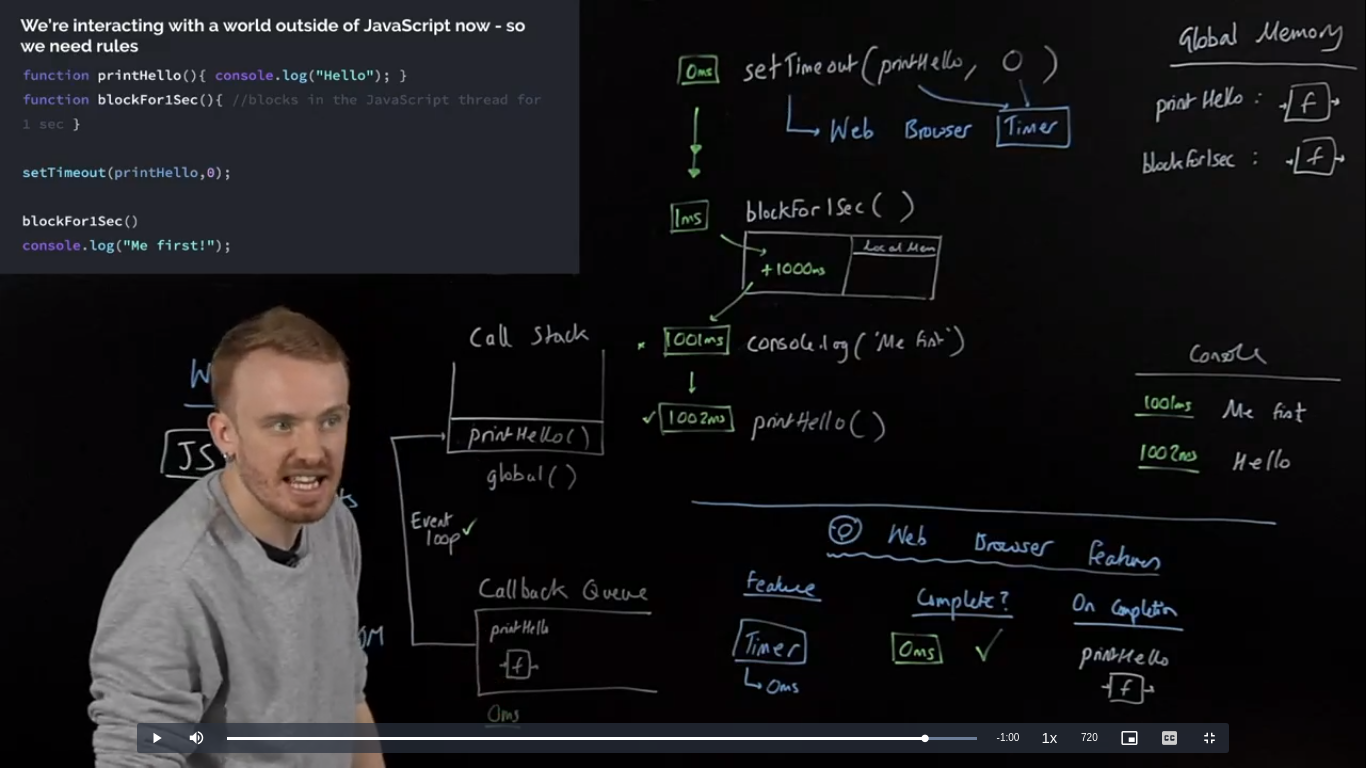 We're interacting with a world outside of JavaScript now - so
we need rules
function printHello(){ console.log("Hello"); }
function blockFor1Sec(){ //blocks in the JavaScript thread for
1 sec }
setTimeout(printHello,0);
blockFor1Sec()
console.log("Me first!");
0ms setTimeout(printHello, 0)
Web Browser Timer
1ms blockFor1Sec( )
Local Mem
+1000ms
1001ms console.log('Me first')
1002ms printHello( )
Global Memory
printHello : f
blockFor1sec : f
Console
1001ms Me first
1002ms Hello
Call Stack
printHello()
global()
Event
loop
Callback Queue
printHello
f
0ms
W
JS
Web Browser Features
Feature Complete? On Completion
Timer 0ms printHello
0ms f
-1:00 1x 720 CC